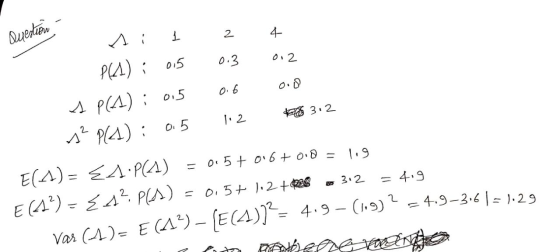 Question
Λ : 1 2 4
P(Λ) : 0.5 0.3 0.2
Λ P(Λ) : 0.5 0.6 0.8
Λ² P(Λ) : 0.5 1.2 3.2
E(Λ) = ΣΛ.P(Λ) = 0.5 + 0.6 + 0.8 = 1.9
E(Λ²) = ΣΛ².P(Λ) = 0.5 + 1.2 + 3.2 = 4.9
Var (Λ) = E(Λ²) - [E(Λ)]² = 4.9 - (1.9)² = 4.9 - 3.61 = 1.29